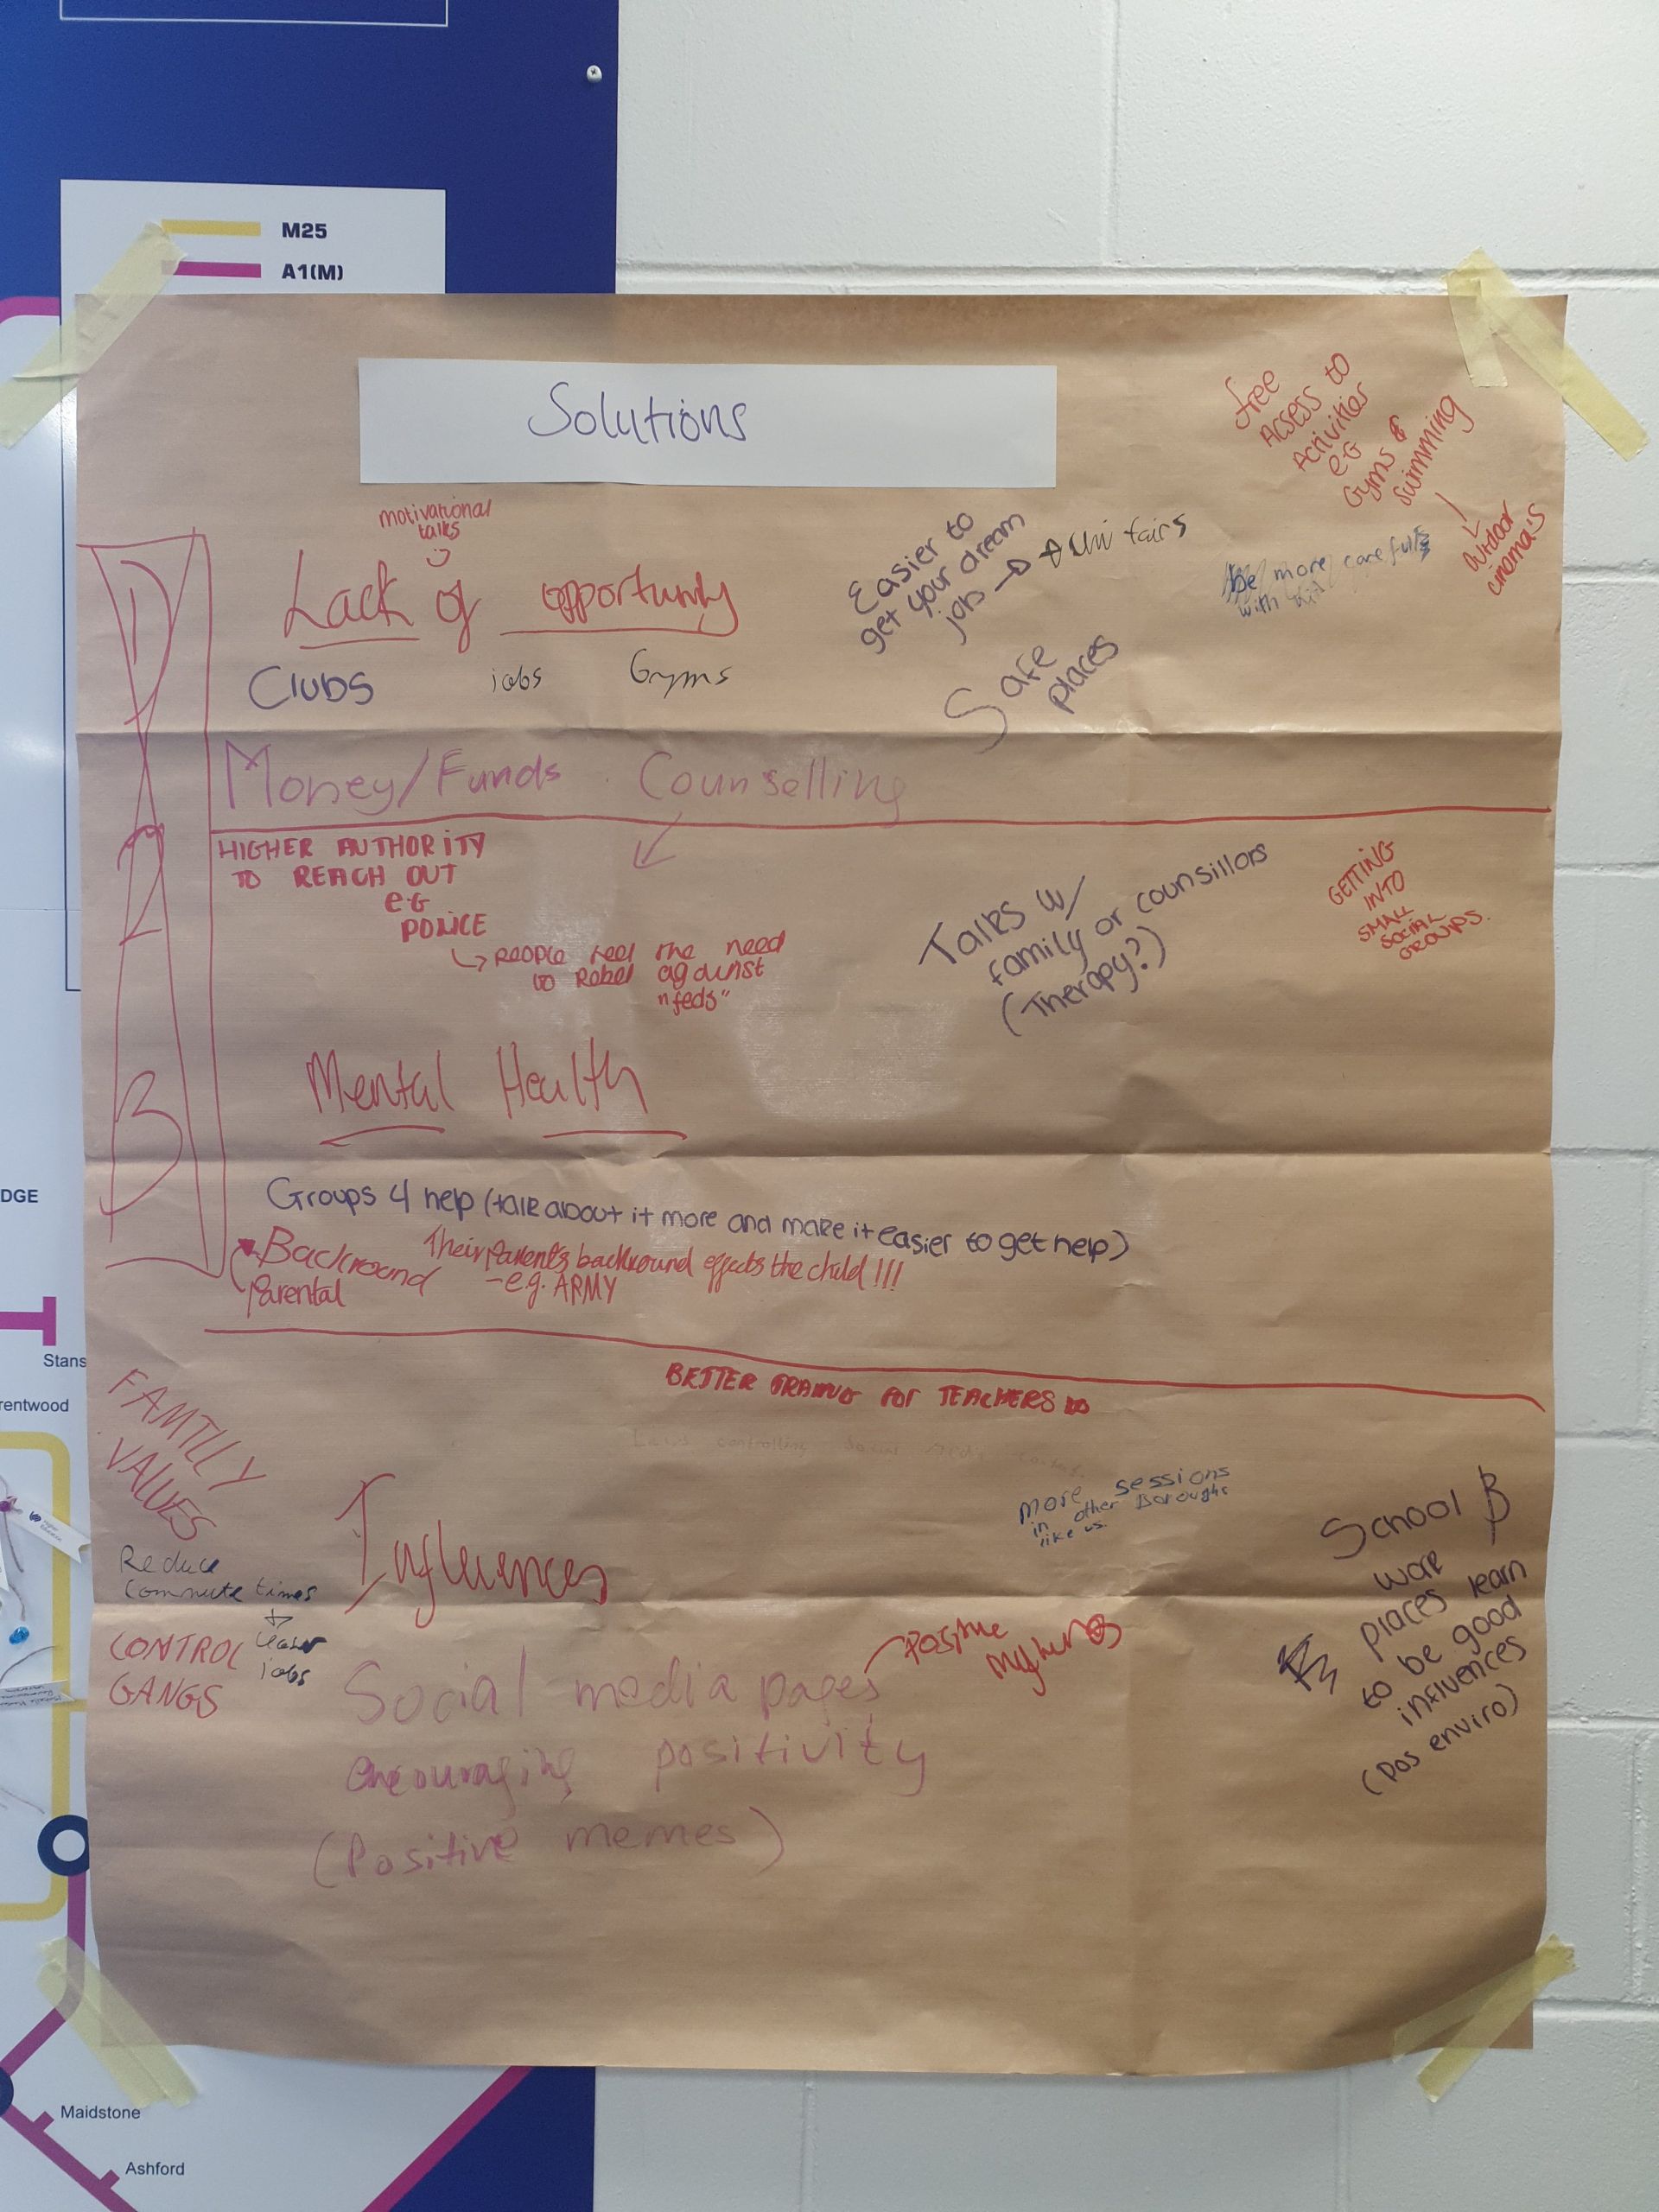 M25
A1(M)
Solutions
free
Acsess to
Activities
e.G
Gyms &
Swimming
Outdoor
cinema's
motivational
talks
Lack of opportunity
Easier to
get your dream
jobs → uni fairs
be more carefull
with
Clubs jobs Gyms
Safe
places
Money/Funds . Counselling
HIGHER AUTHORITY
TO REACH OUT
e.G
POLICE
PEOPLE feel the need
to Rebel against
"feds"
Talks w/
family or counsillors
(Therapy?)
GETTING
INTO
SMALL
SOCIAL
GROUPS.
Mental Health
Groups 4 help (talk about it more and make it easier to get help)
Backround
Parental
Their Parent's backround effects the child!!!
- e.g. ARMY
BETTER FOR TEACHERS
controlling
FAMILY
VALUES
Influences
more sessions
in other Boroughs
like us.
School &
work
places learn
to be good
influences
(pos enviro)
Reduce
commute times
jobs
CONTROL
GANGS
Social media pages
encouraging positivity
(Positive memes)
Positive
DGE
Stans
rentwood
Maidstone
Ashford